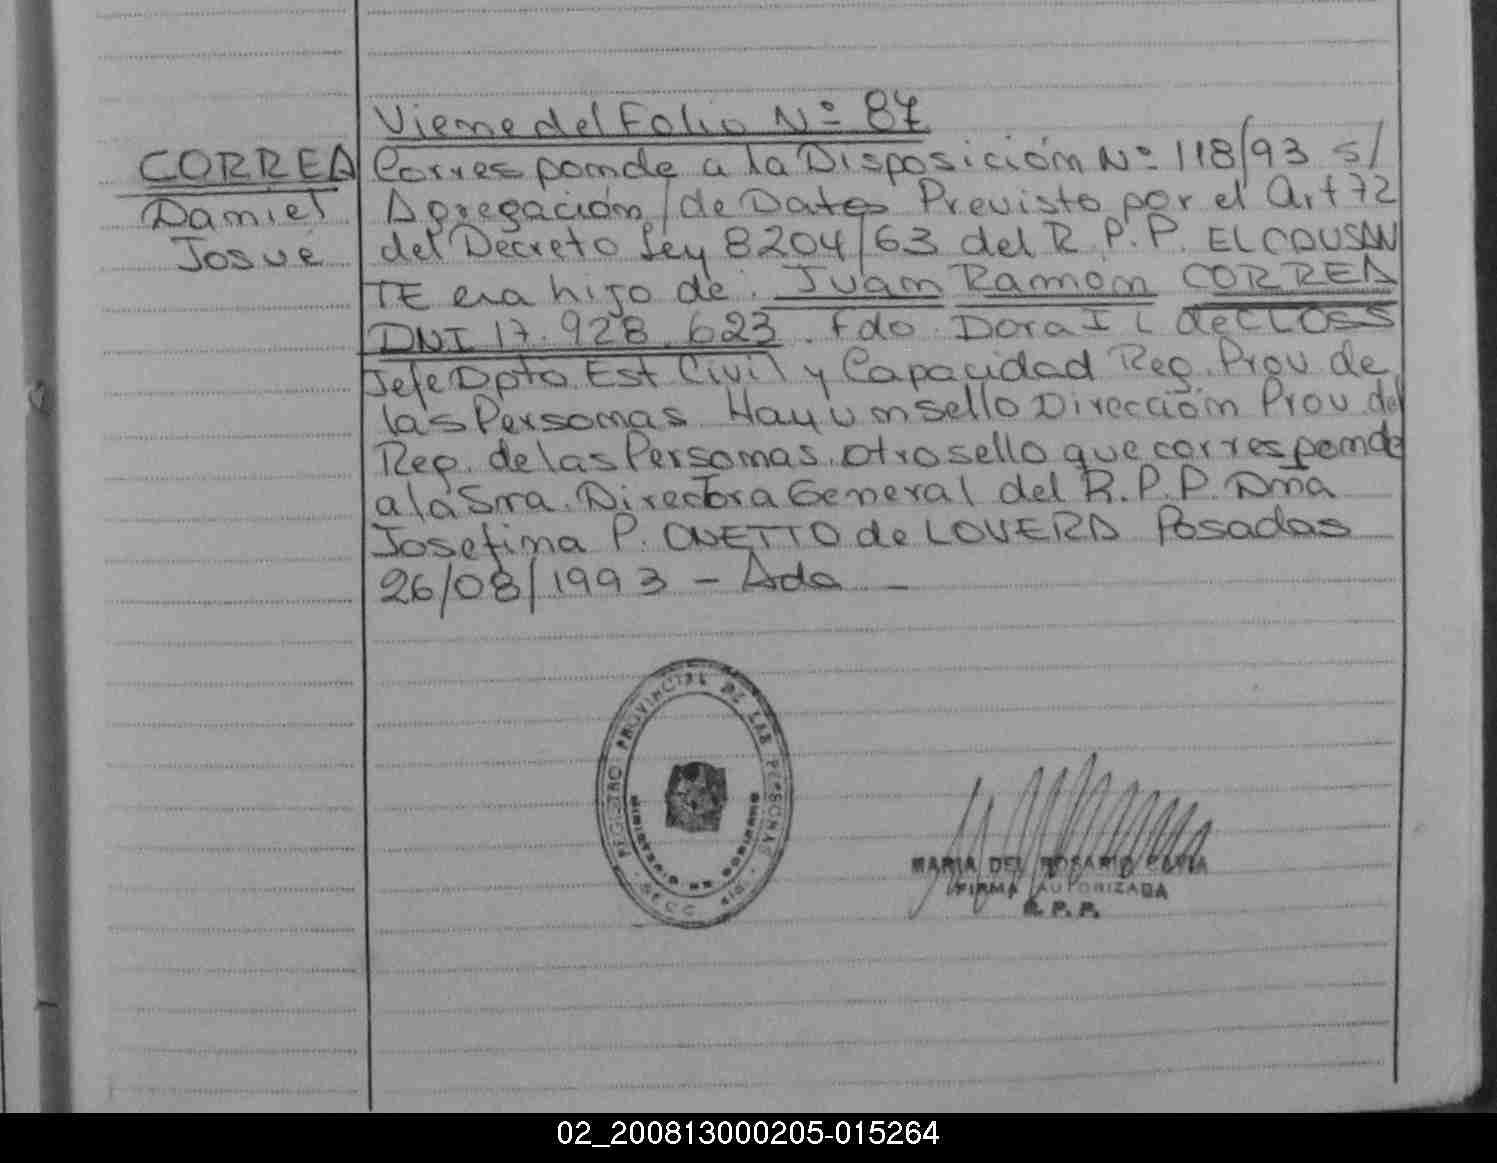 Viene del Folio Nº 87
CORREA
Daniel
Josué
Corresponde a la Disposición Nº 118/93 s/
Agregación de Datos Previsto por el Art 72
del Decreto Ley 8204/63 del R.P.P. EL CAUSAN
TE era hijo de: Juan Ramón CORREA
DNI 17.928.623. Fdo. Dora I L de CLOSS
Jefe Dpto. Est Civil y Capacidad Reg. Prov de
las Personas Hay un sello Dirección Prov del
Reg. de las Personas. otro sello que corresponde
a la Sra. Directora General del R.P.P. Dña
Josefina P. ONETTO de LOVERA Posadas
26/08/1993 - Ada -
REGISTRO PROVINCIAL DE LAS PERSONAS
MINISTERIO DE GOBIERNO
MARIA DEL ROSARIO
FIRMA AUTORIZADA
R. P. P.
02_200813000205-015264